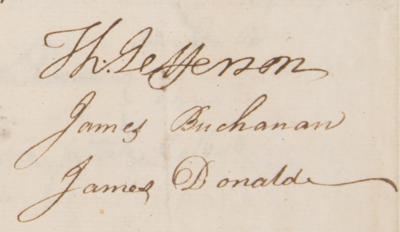 Th. Jefferson
James Buchanan
James Donald